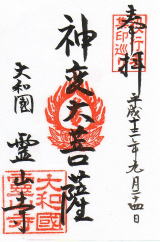 奉拝
平成十二年九月二十四日
神変大菩薩
大和國
霊山寺
大和國
霊山寺